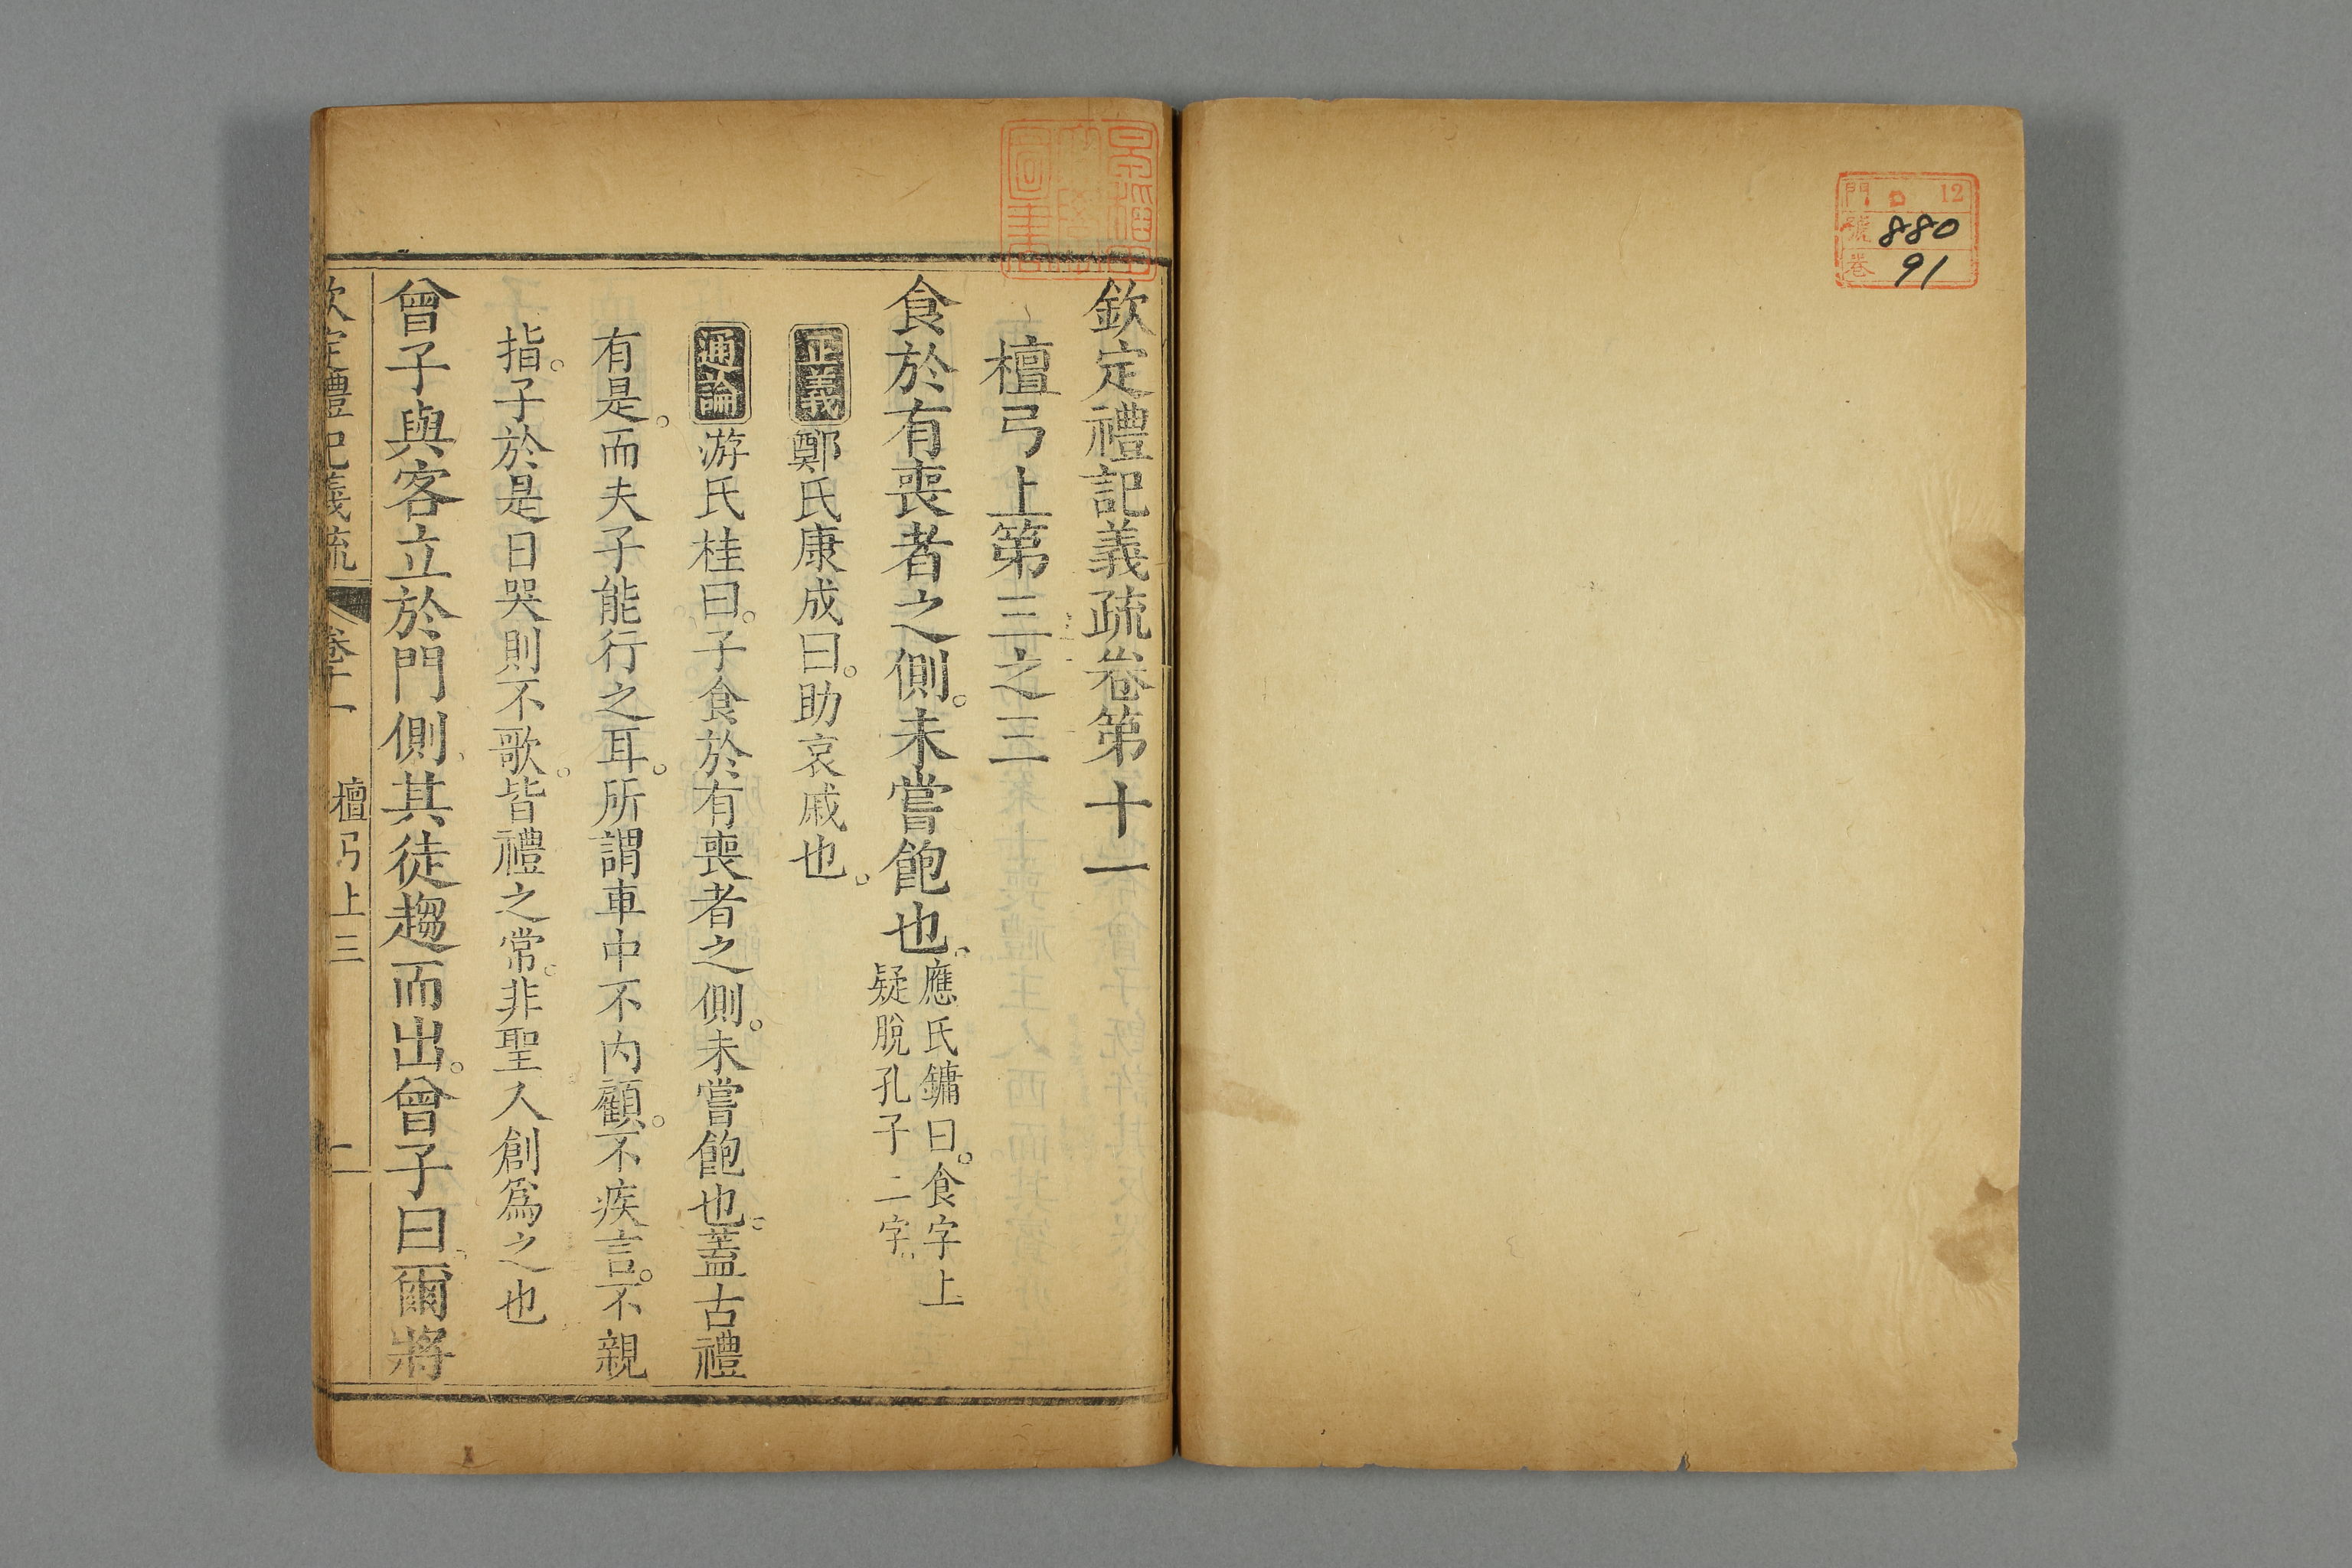 門 口 12
號 880
卷 91
早稲田大學圖書
欽定禮記義疏卷第十一
檀弓上第三之三
食於有喪者之側。未嘗飽也。應氏鏞曰。食字上
疑脫孔子二字
正義 鄭氏康成曰。助哀戚也。
通論 游氏桂曰。子食於有喪者之側。未嘗飽也。蓋古禮
有是。而夫子能行之耳。所謂車中不內顧。不疾言。不親
指。子於是日哭則不歌。皆禮之常。非聖人創爲之也
曾子與客立於門側、其徒趨而出。曾子曰、爾將
欽定禮記義疏 卷十一 檀弓上三 一